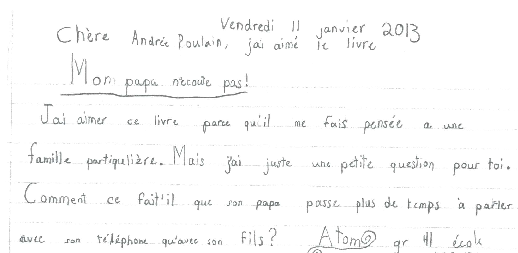 Vendredi 11 janvier 2013
Chère Andrée Poulain, j'ai aimé le livre
Mon papa n'écoute pas!
J'ai aimer ce livre parce qu'il me fais pensée a une
famille partiqulière. Mais j'ai juste une petite question pour toi.
Comment ce fait'il que son papa passe plus de temps à parler
avec son téléphone qu'avec son fils? Atom gr 411 écol